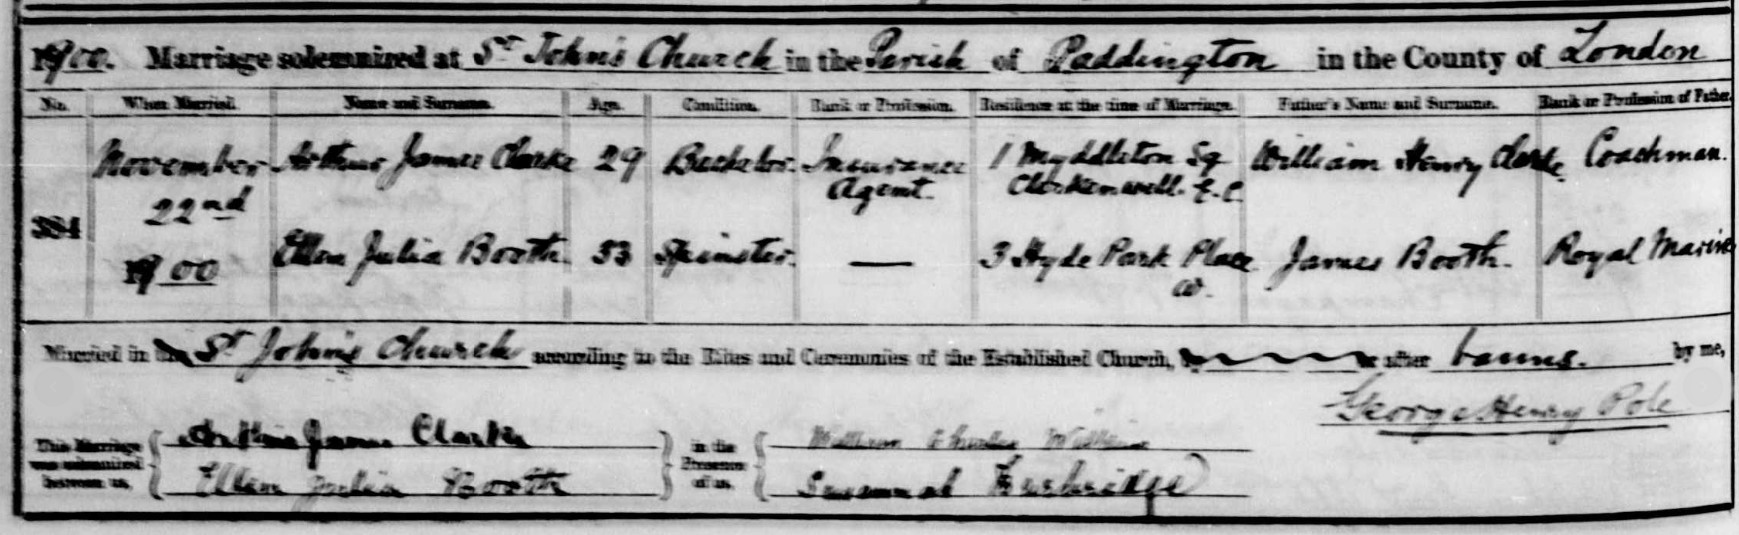 1900. Marriage solemnized at St John's Church in the Parish of Paddington in the County of London
No. When Married. Name and Surname. Age. Condition. Rank or Profession. Residence at the time of Marriage. Father's Name and Surname. Rank or Profession of Father.
November Arthur James Clarke 29 Bachelor. Insurance 1 Myddleton Sq William Henry Clarke. Coachman.
22nd Agent. Clerkenwell. E.C.
384
1900 Ellen Julia Booth. 33 Spinster. — 3 Hyde Park Place James Booth. Royal Marine
W.
Married in the St John's Church according to the Rites and Ceremonies of the Established Church, by or after banns. by me,
George Henry Pole
This Marriage was solemnized between us, Arthur James Clarke in the Presence of us, William Charles
Ellen Julia Booth Susannah